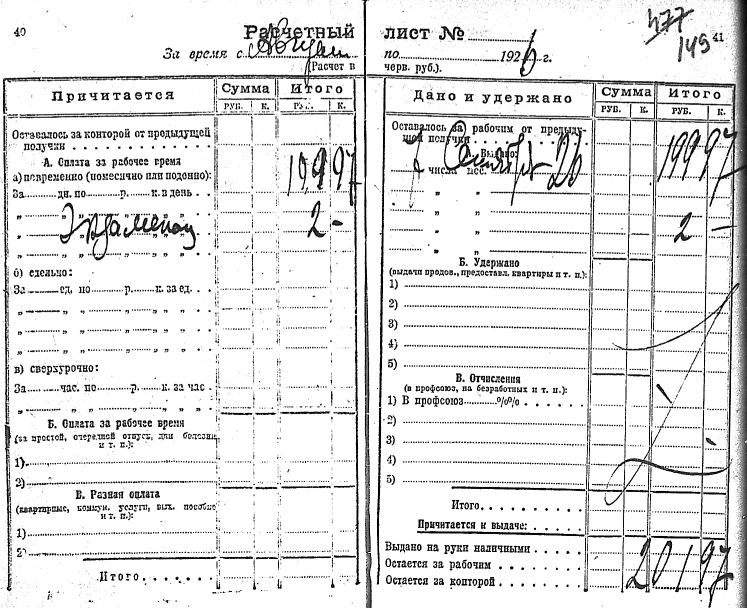 40
Расчетный лист №
477
149
41
За время с Август по 1926 г.
(Расчет в черв. руб.).
Причитается
Сумма
Итого
РУБ. К. РУБ. К.
Оставалось за конторой от предыдущей
получки
А. Оплата за рабочее время
а) повременно (помесячно или подонно):
199 97
За дн. по р. к. в день
" " " " "
" " " " "
2 -
" " " " "
б) сдельно:
За ед. по р. к. за ед.
" " " " "
" " " " "
" " " " "
в) сверхурочно:
За час. по р. к. за час
" " " " "
Б. Оплата за рабочее время
(за простой, очередной отпуск, дни болезни
и т. п.):
1)
2)
В. Разная оплата
(квартирные, коммун. услуги, вых. пособие
и т. п.):
1)
2)
Итого
Дано и удержано
Сумма
Итого
РУБ. К. РУБ. К.
Оставалось за рабочим от предыду-
щей получки
Выдано:
199 97
числа мес.
" "
" "
" "
2 -
" "
Б. Удержано
(выдачи продов., предоставл. квартиры и т. п.):
1)
2)
3)
4)
5)
В. Отчисления
(в профсоюз, на безработных и т. п.):
1) В профсоюз %%
2)
3)
4)
5)
Итого
Причитается к выдаче:
Выдано на руки наличными
Остается за рабочим
201 97
Остается за конторой